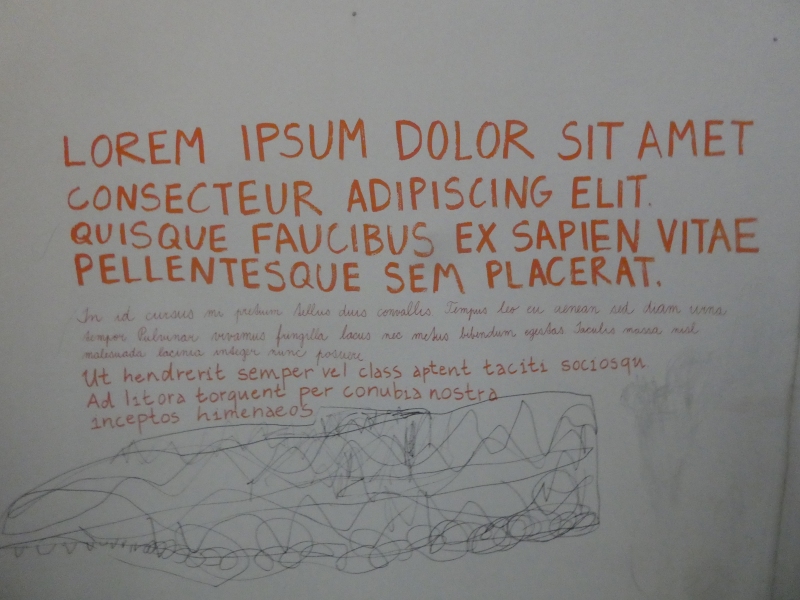 LOREM IPSUM DOLOR SIT AMET
CONSECTEUR ADIPISCING ELIT.
QUISQUE FAUCIBUS EX SAPIEN VITAE
PELLENTESQUE SEM PLACERAT.
In id cursus mi pretium tellus duis convallis. Tempus leo eu aenean sed diam urna
tempor Pulvinar vivamus fringilla lacus nec metus bibendum egestas Iaculis massa nisl
malesuada lacinia integer nunc posuere
Ut hendrerit semper vel class aptent taciti sociosqu
Ad litora torquent per conubia nostra
inceptos himenaeos